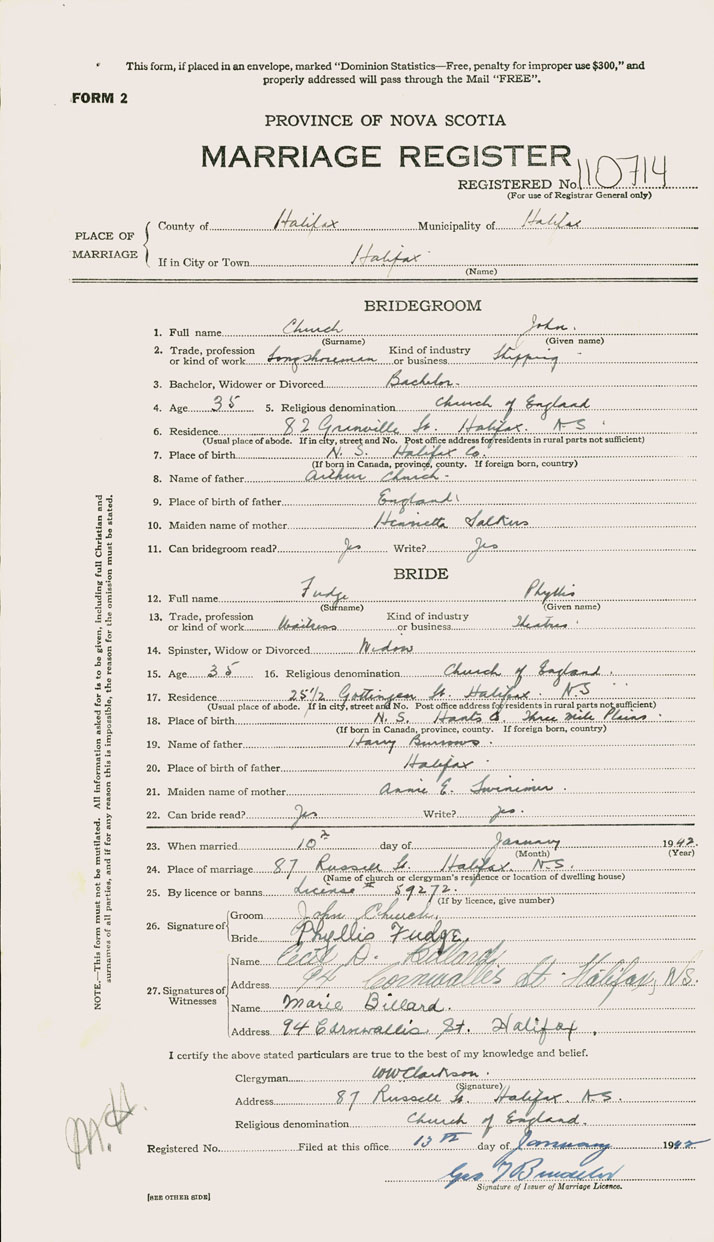 This form, if placed in an envelope, marked "Dominion Statistics—Free, penalty for improper use $300," and
properly addressed will pass through the Mail "FREE".
FORM 2
PROVINCE OF NOVA SCOTIA
MARRIAGE REGISTER
REGISTERED No. 110714
(For use of Registrar General only)
PLACE OF MARRIAGE
County of Halifax Municipality of Halifax
If in City or Town Halifax
(Name)
BRIDEGROOM
1. Full name Church John.
(Surname) (Given name)
2. Trade, profession or kind of work Longshoreman Kind of industry or business Shipping
3. Bachelor, Widower or Divorced Bachelor.
4. Age 35 5. Religious denomination Church of England
6. Residence 82 Granville St. Halifax. N S
(Usual place of abode. If in city, street and No. Post office address for residents in rural parts not sufficient)
7. Place of birth N. S. Halifax Co.
(If born in Canada, province, county. If foreign born, country)
8. Name of father Arthur Church
9. Place of birth of father England
10. Maiden name of mother Henrietta
11. Can bridegroom read? Yes Write? Yes
BRIDE
12. Full name Fudge Phyllis
(Surname) (Given name)
13. Trade, profession or kind of work Waitress Kind of industry or business Theatres
14. Spinster, Widow or Divorced Widow
15. Age 35 16. Religious denomination Church of England.
17. Residence 25½ Gottingen St. Halifax. N S
(Usual place of abode. If in city, street and No. Post office address for residents in rural parts not sufficient)
18. Place of birth N. S. Hants Co. Three Mile Plains
(If born in Canada, province, county. If foreign born, country)
19. Name of father Harry Burrows
20. Place of birth of father Halifax
21. Maiden name of mother Annie E. Swinimer
22. Can bride read? Yes Write? Yes.
23. When married 10th day of January 1942
(Month) (Year)
24. Place of marriage 87 Russell St. Halifax. N. S.
(Name of church or clergyman's residence or location of dwelling house)
25. By licence or banns License # 59272.
(If by licence, give number)
26. Signature of
Groom John Church.
Bride Phyllis Fudge.
27. Signatures of Witnesses
Name Cecil D. Billard
Address 94 Cornwallis St. Halifax, N.S.
Name Marie Billard.
Address 94 Cornwallis St. Halifax.
I certify the above stated particulars are true to the best of my knowledge and belief.
Clergyman WW Clarkson.
(Signature)
Address 87 Russell St. Halifax N S.
Religious denomination Church of England.
Registered No. Filed at this office 13th day of January 1942
Signature of Issuer of Marriage Licence.
[SEE OTHER SIDE]
NOTE.—This form must not be mutilated. All information asked for is to be given, including full Christian and
surnames of all parties, and if for any reason this is impossible, the reason for the omission must be stated.
M.H.